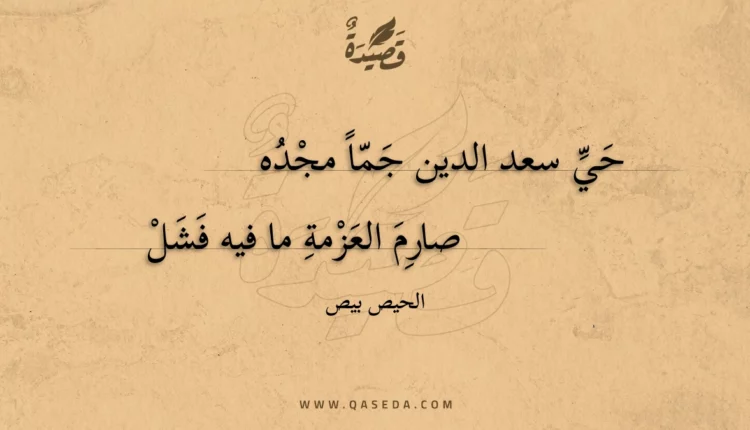 قَصِيْدَةٌ
حَيِّ سعد الدين جَمّاً مجْدُه
صارِمَ العَزْمةِ ما فيه فَشَلْ
الحيص بيص
WWW.QASEDA.COM